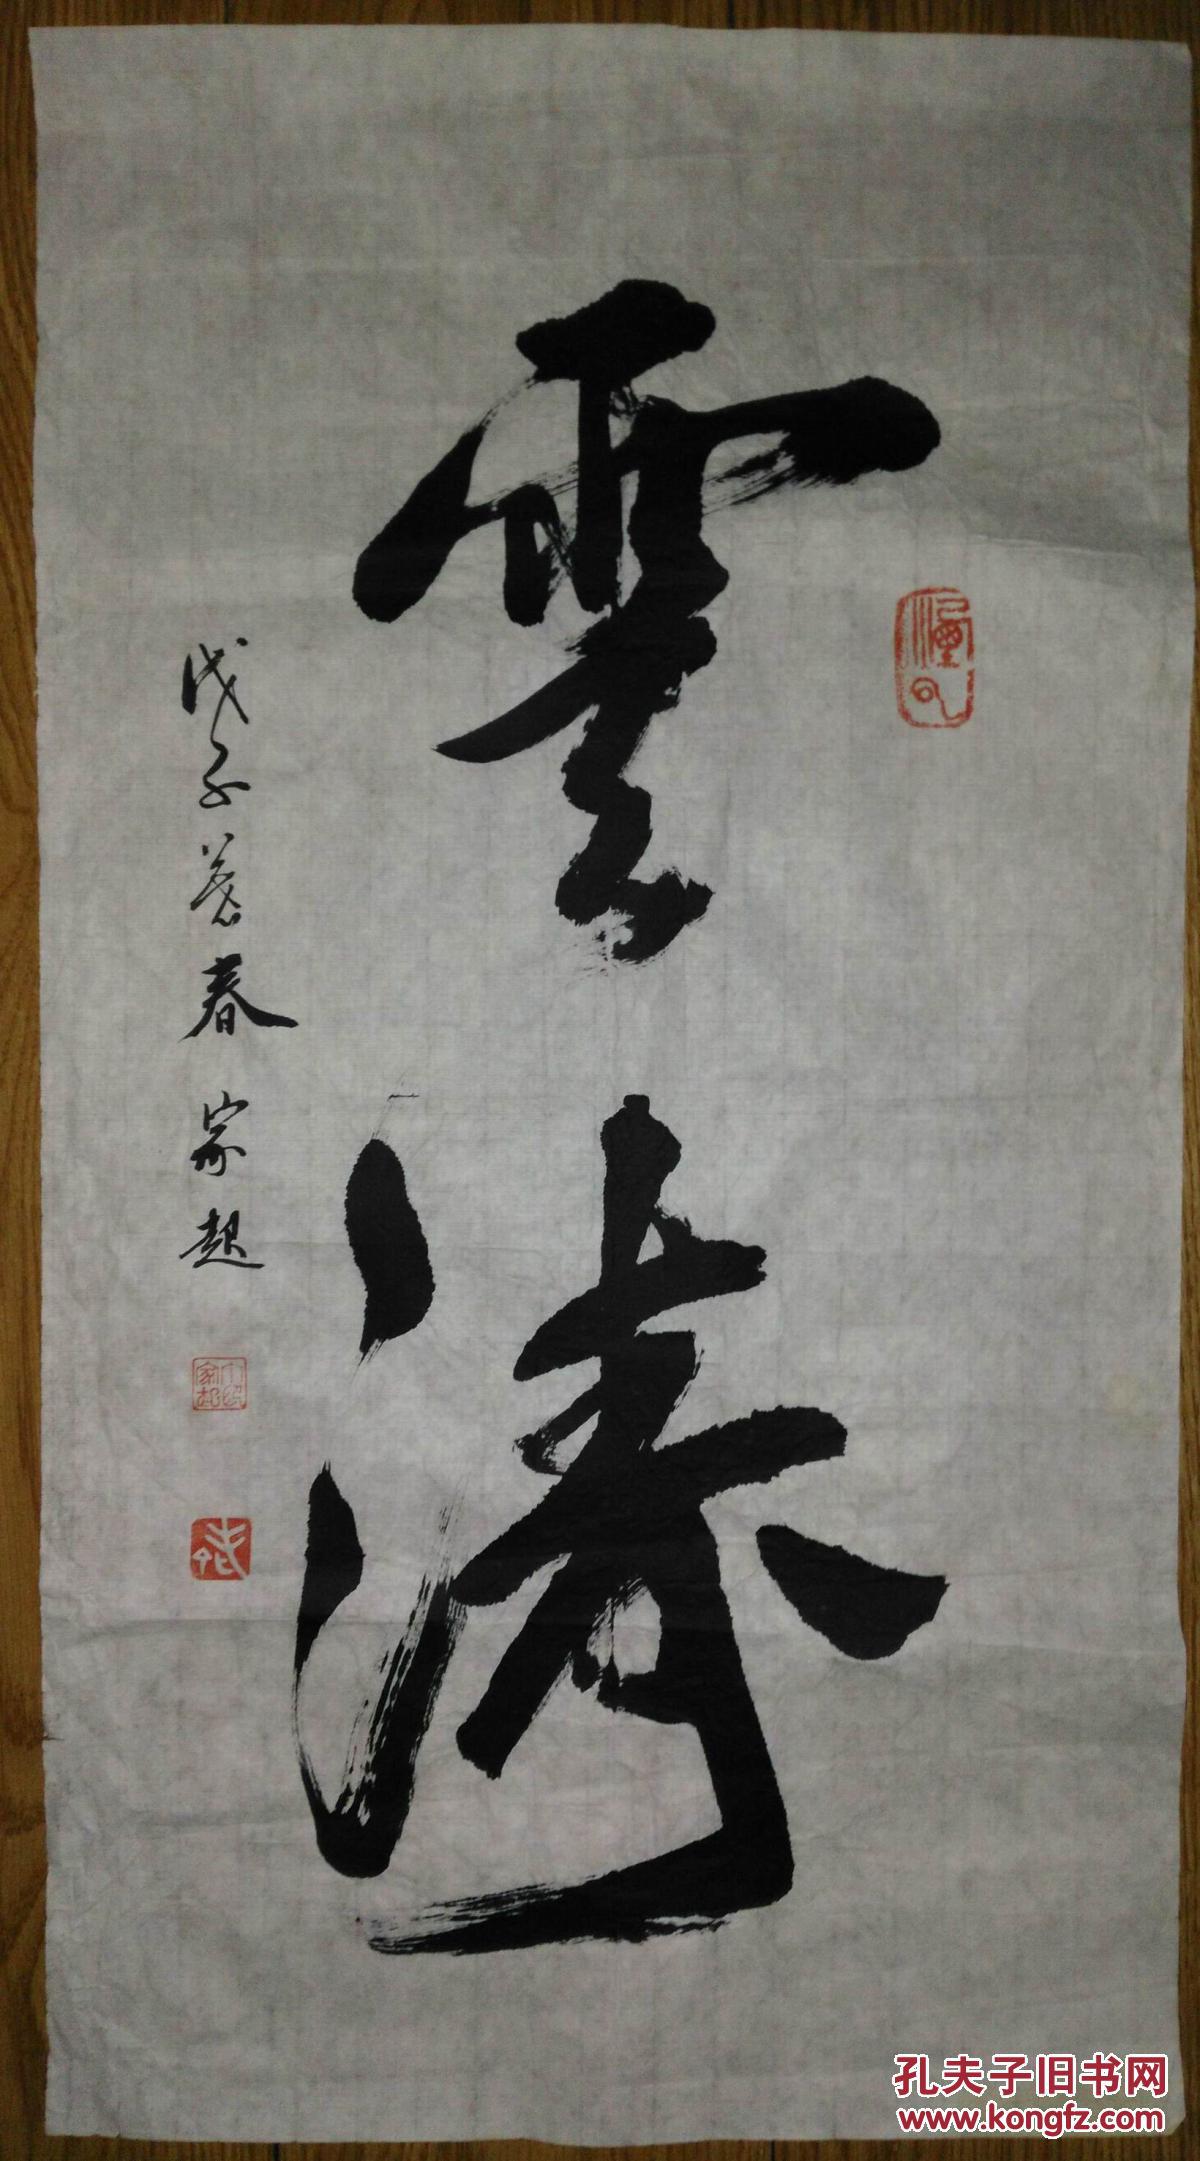 雲涛
戊子暮春 家起
孔夫子旧书网
www.kongfz.com